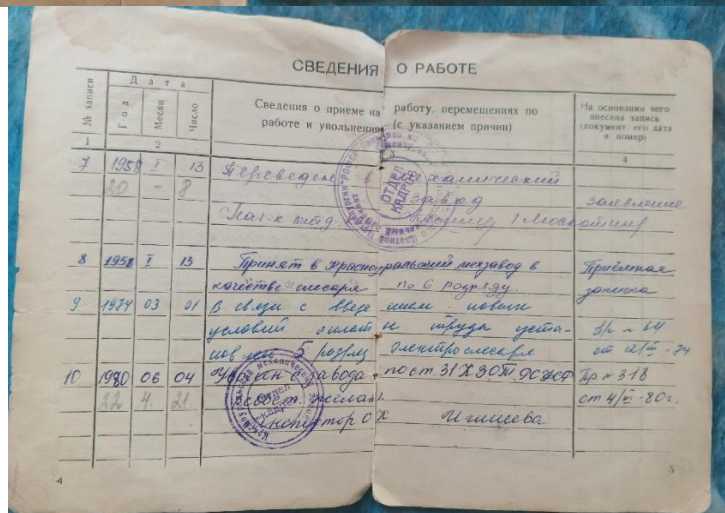 СВЕДЕНИЯ О РАБОТЕ
№ записи
Дата
Год
Месяц
Число
Сведения о приеме на работу, перемещениях по
работе и увольнении (с указанием причин)
На основании чего
внесена запись
(документ его дата
и номер)
1 2 3 4
7 1958 I 13 Переведен в механический
20 - 8 завод заявление
Нач-к отд
ОТДЕЛ
КАДРОВ
8 1958 I 13 Принят в Красноуральский мехзавод в Приёмная
качестве слесаря по 6 разряду. записка
9 1974 03 01 В связи с введением новых
условий оплаты труда уста- Пр № 64
новлен 5 разряд электрослесаря от 12/III-74
10 1980 06 04 Уволен с завода по ст 31 КЗОТ РСФСР Пр № 318
22 4. 21. собст. желан. от 4/VI-80г.
Инспектор ОК
Отдел
кадров
4
5